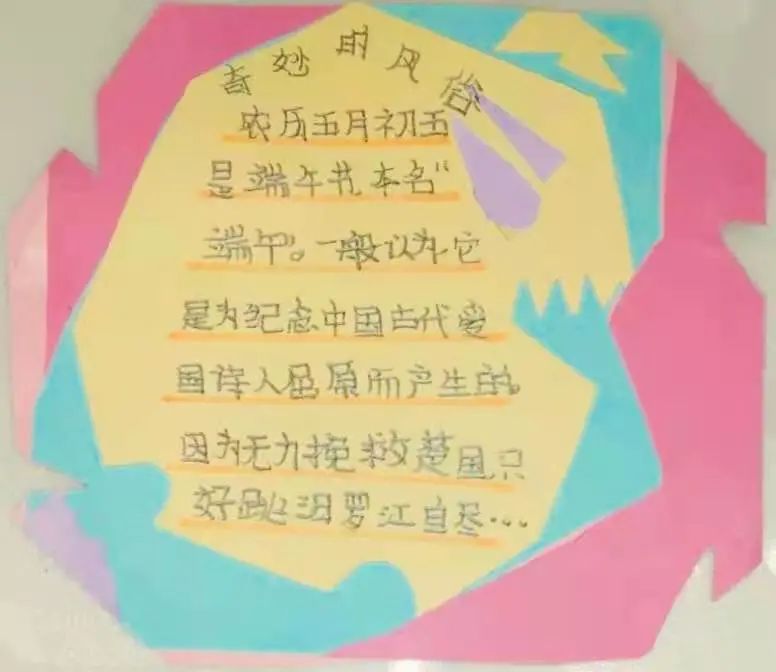 奇妙的风俗
农历五月初五
是端午节,本名“
端午”。一般认为,它
是为纪念中国古代爱
国诗人屈原而产生的。
因为无力挽救楚国,只
好跳汨罗江自尽…